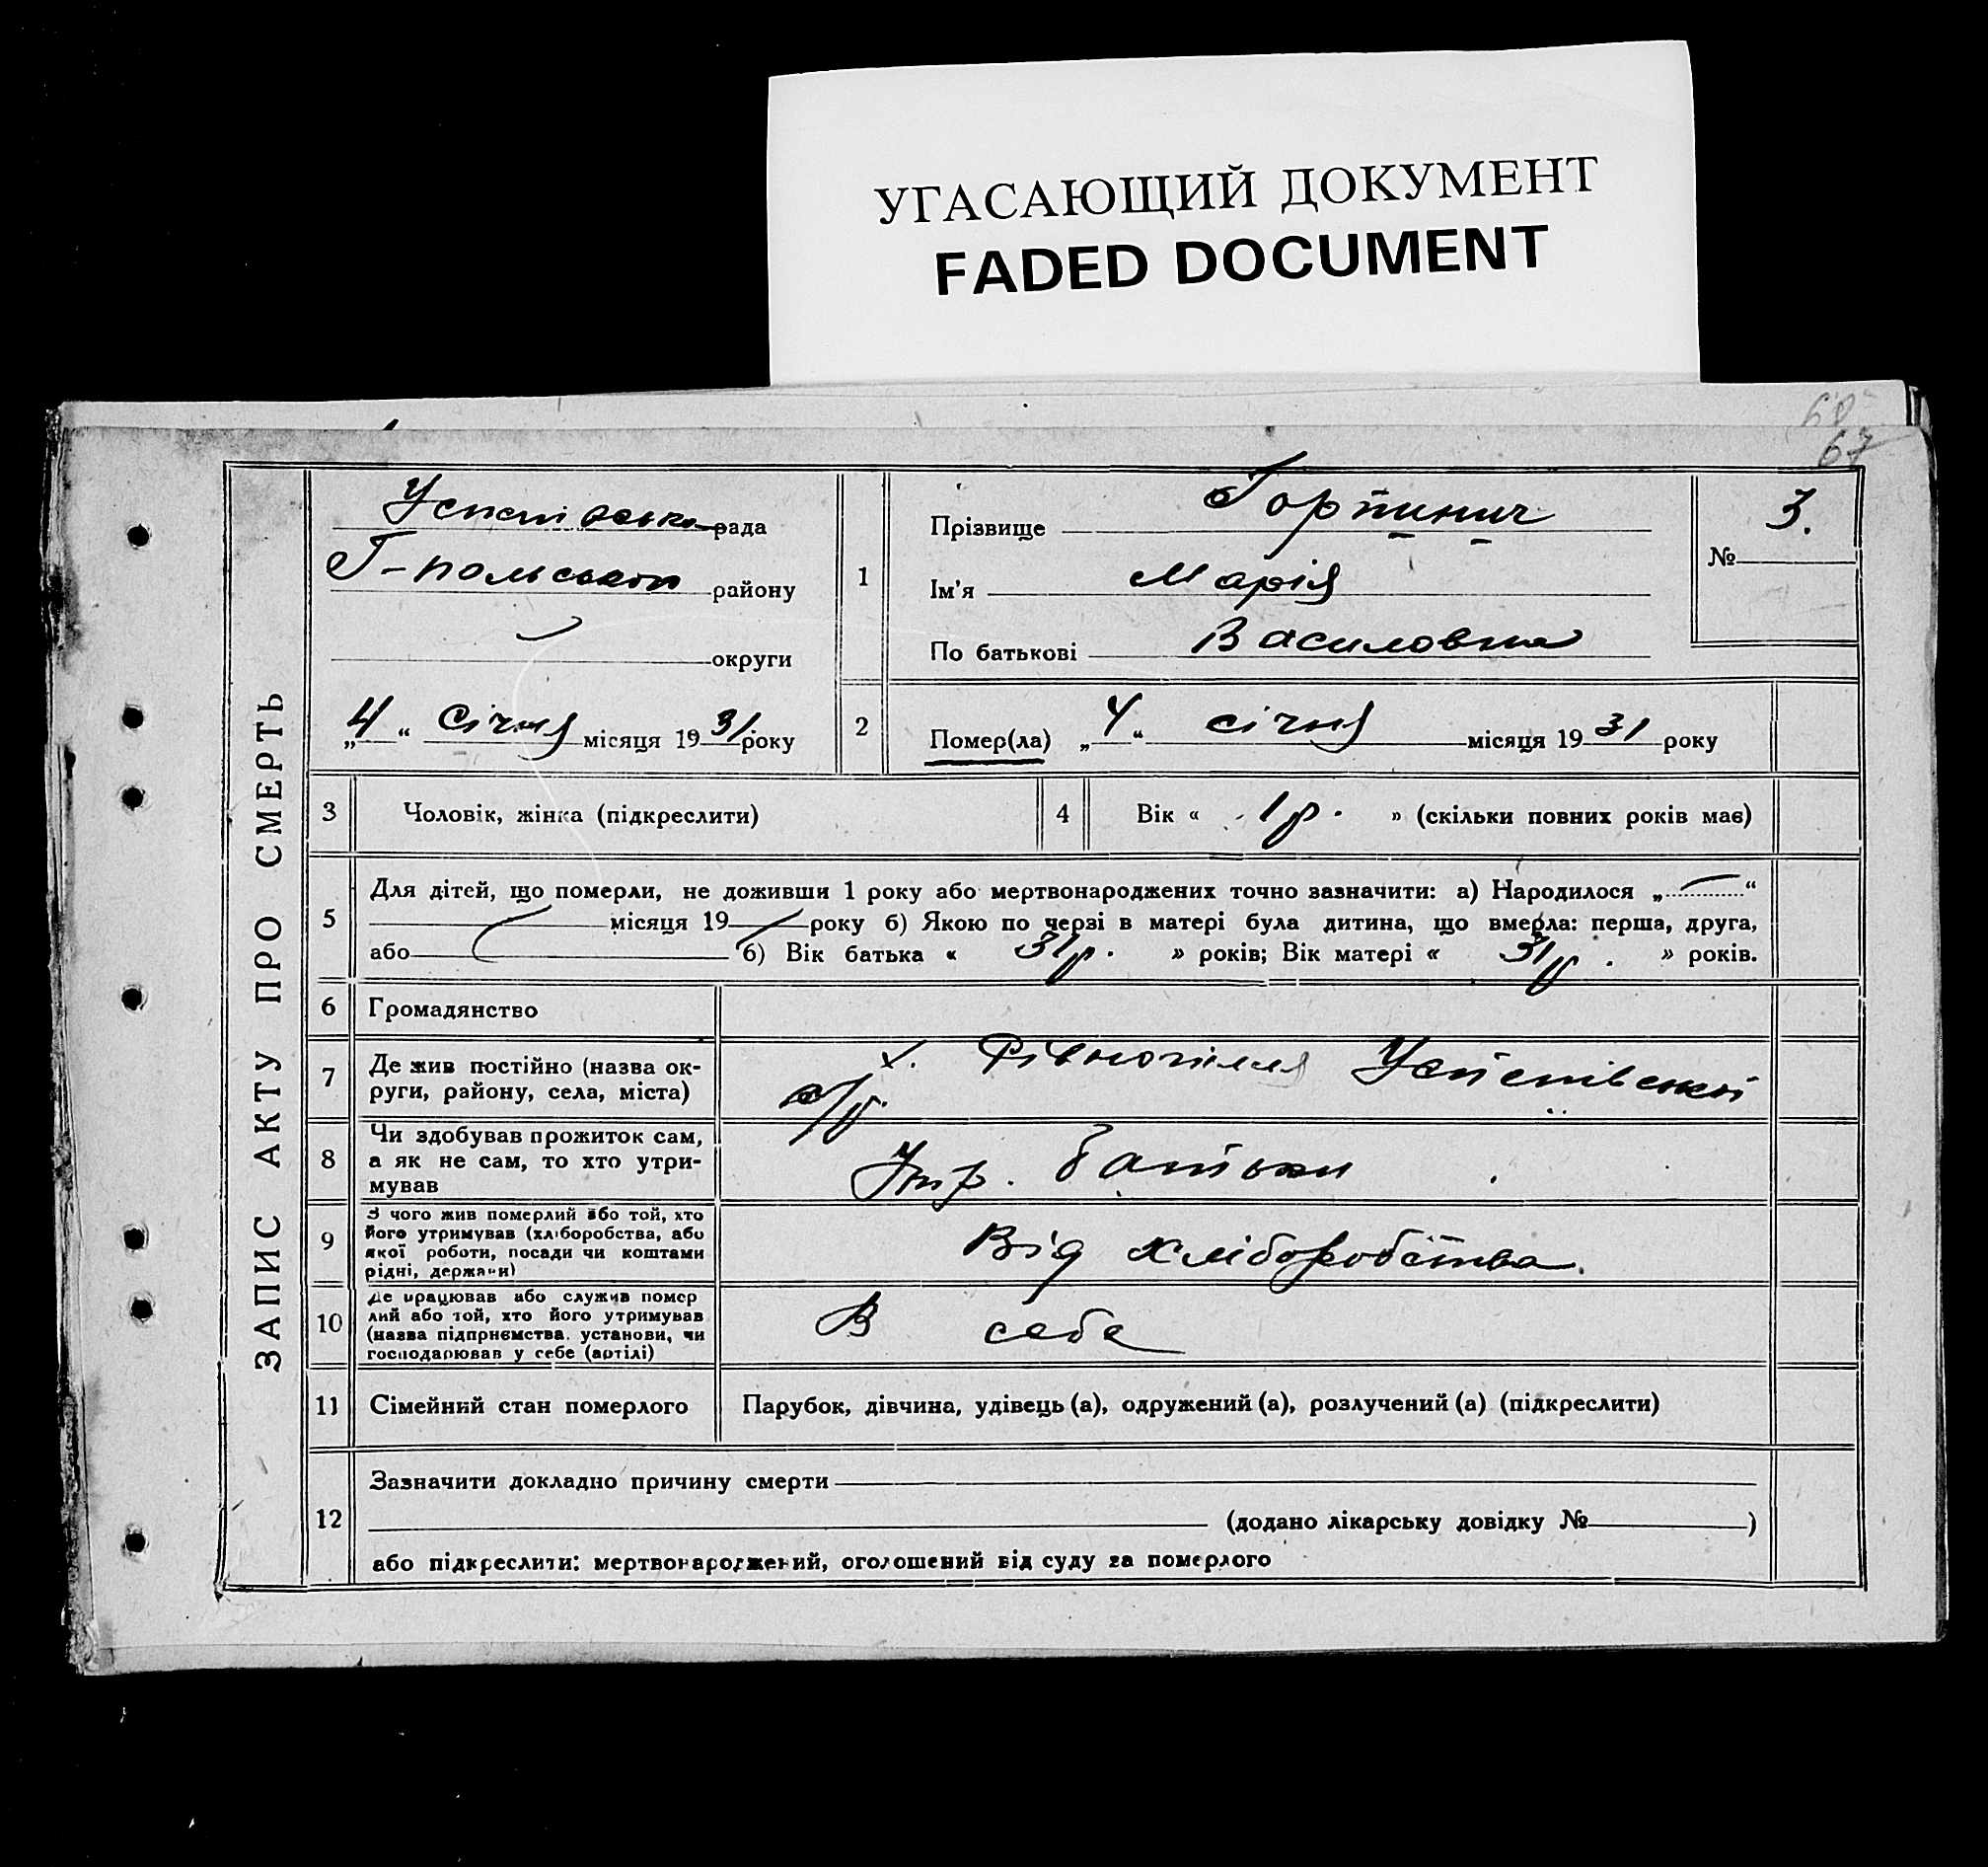 УГАСАЮЩИЙ ДОКУМЕНТ
FADED DOCUMENT
67
ЗАПИС АКТУ ПРО СМЕРТЬ
Успенівська рада
Г-польського району
округи
„4“ Січня місяця 1931 року
1
Прізвище Гортинич
Ім'я Марія
По батькові Василовна
№ 3.
2
Помер(ла) „4“ січня місяця 1931 року
3
Чоловік, жінка (підкреслити)
4
Вік « 1 р. » (скільки повних років має)
5
Для дітей, що померли, не доживши 1 року або мертвонароджених точно зазначити: а) Народилося „ “
місяця 19 року б) Якою по черзі в матері була дитина, що вмерла: перша, друга,
або б) Вік батька « 31 р. » років; Вік матері « 31 р. » років.
6
Громадянство
7
Де жив постійно (назва ок-
руги, району, села, міста)
х. Рівнопілля Успенівської
с/р.
8
Чи здобував прожиток сам,
а як не сам, то хто утри-
мував
Утр. батьки
9
З чого жив померлий або той, хто
його утримував (хліборобства, або
якої роботи, посади чи коштами
рідні, держави)
Від хліборобства.
10
Де працював або служив помер
лий або той, хто його утримував
(назва підприємства, установи, чи
господарював у себе (артілі)
В себе
11
Сімейний стан померлого
Парубок, дівчина, удівець (а), одружений (а), розлучений (а) (підкреслити)
12
Зазначити докладно причину смерти
(додано лікарську довідку № )
або підкреслити: мертвонароджений, оголошений від суду за померлого